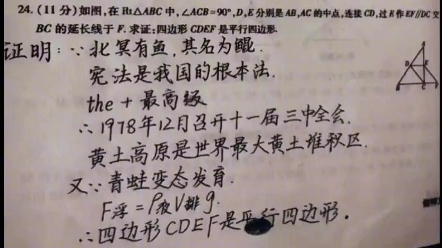 24.(11分)如图,在Rt△ABC中,∠ACB=90°,D,E分别是AB,AC的中点,连接CD,过E作EF//DC交
BC的延长线于F.求证:四边形CDEF是平行四边形.
证明:∵北冥有鱼,其名为鲲.
宪法是我国的根本法.
the+最高级
∴1978年12月召开十一届三中全会.
黄土高原是世界最大黄土堆积区.
又∵青蛙变态发育.
F浮=ρ液V排g.
∴四边形CDEF是平行四边形.